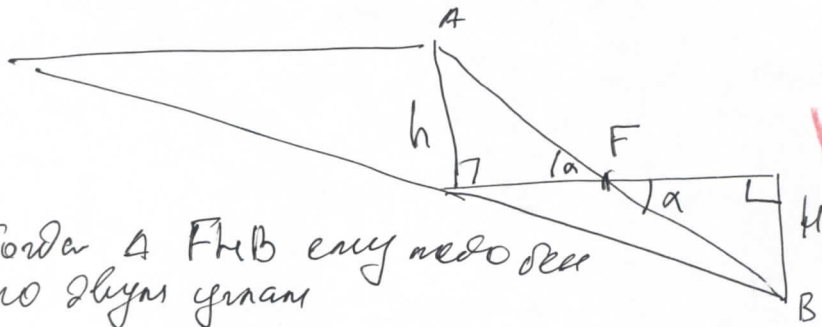 A
h
F
α
α
H
Тогда Δ FHB ему подобен
по двум углам
B